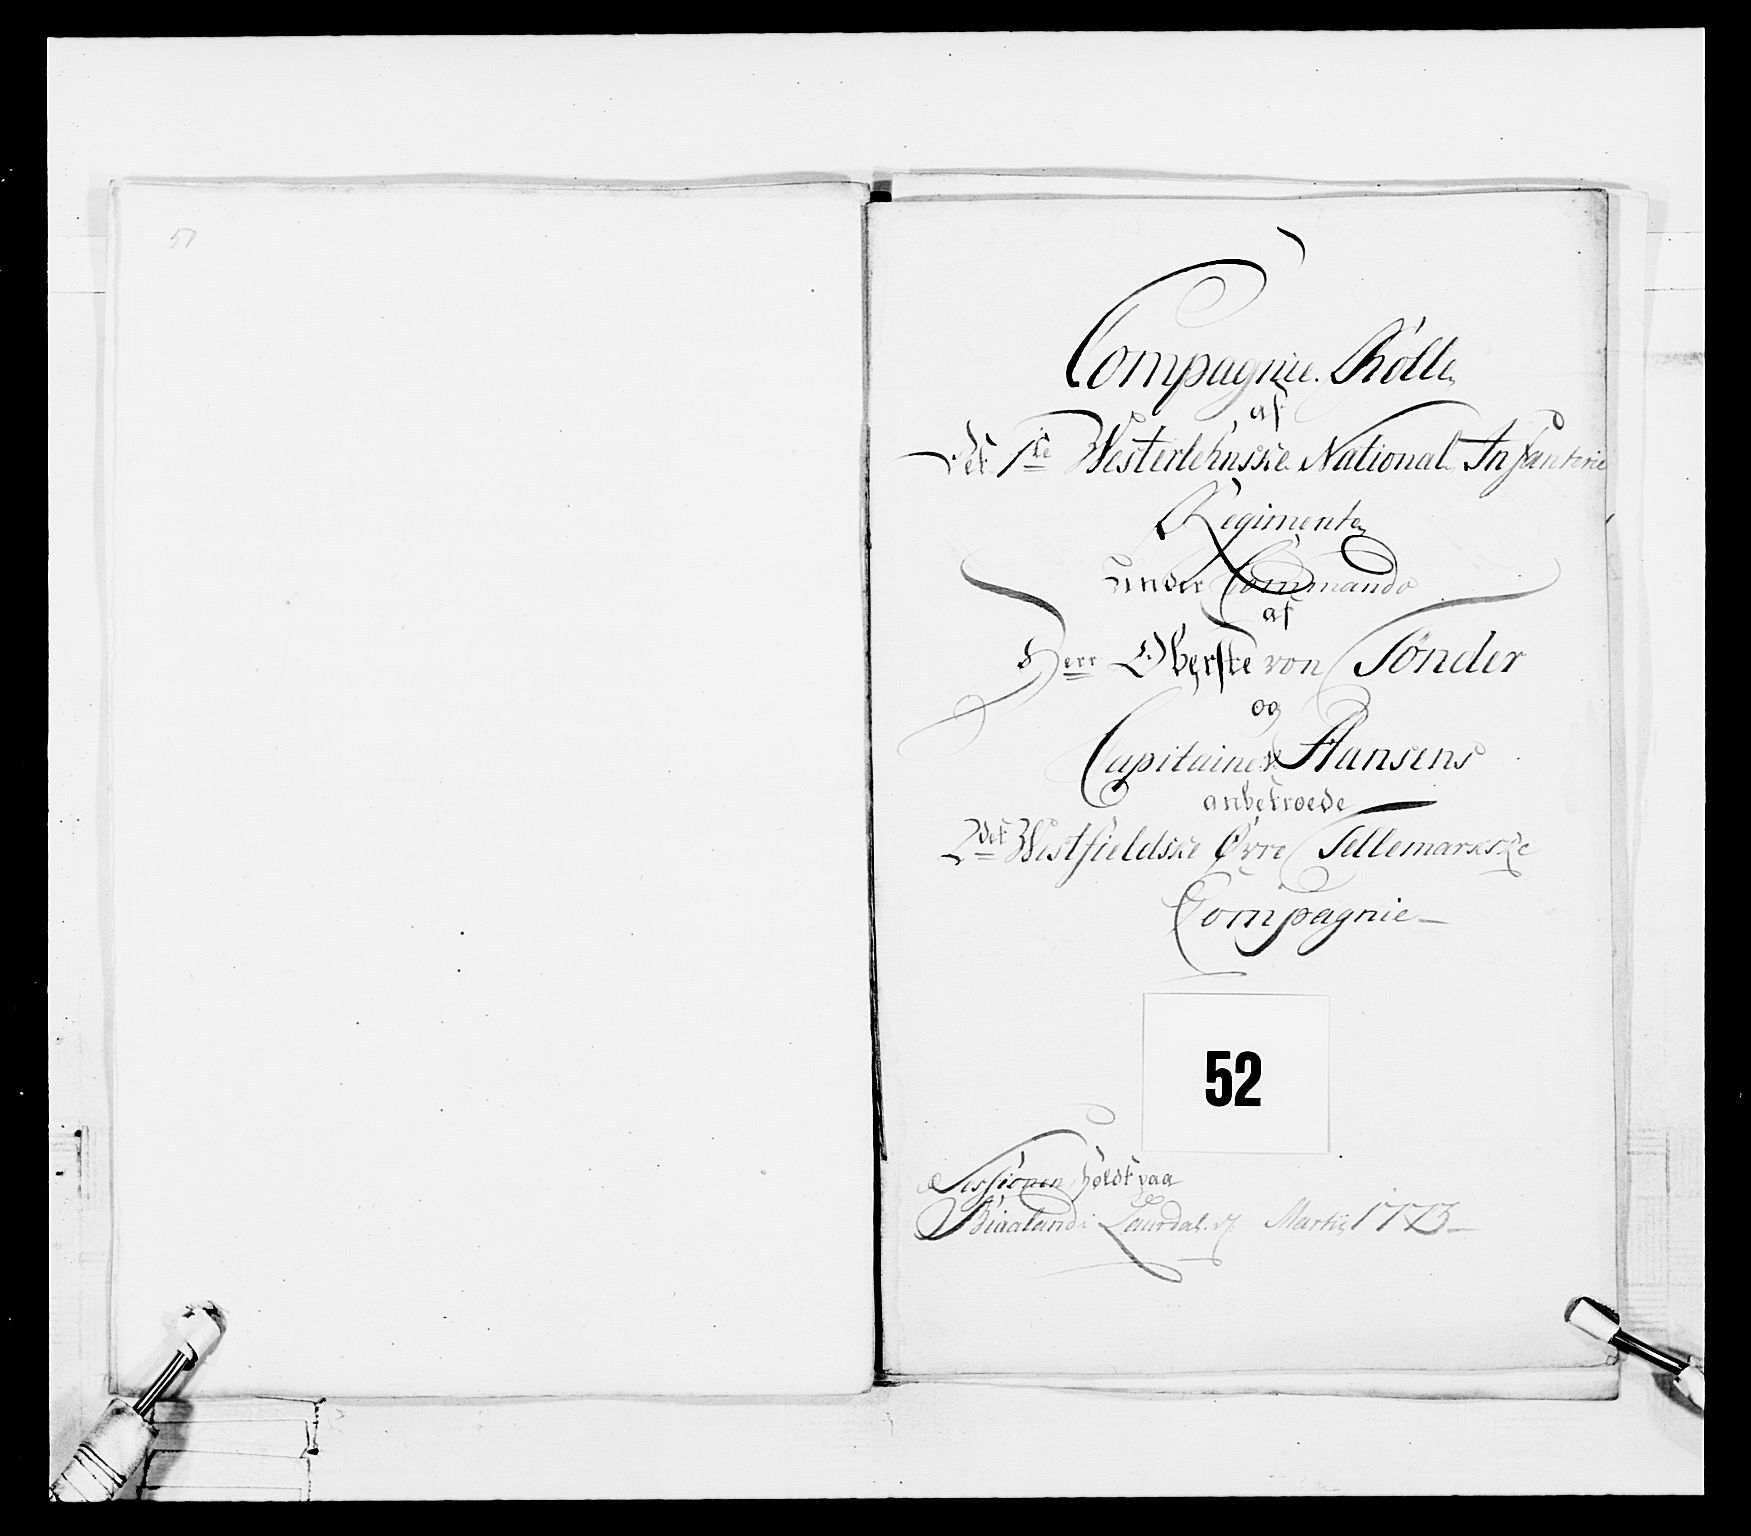 51
Compagnie Rolle
af
Det 1ste Westerlehnske National Infanterie
Regimente
under Commando
af
Herr Oberste von Tønder
og
Capitaine Hansens
anbetroede
2det Westfieldske Øvre Tellemarkske
Compagnie
52
Sessionen holdt paa
Biaaland i Laurdal Martii 1773